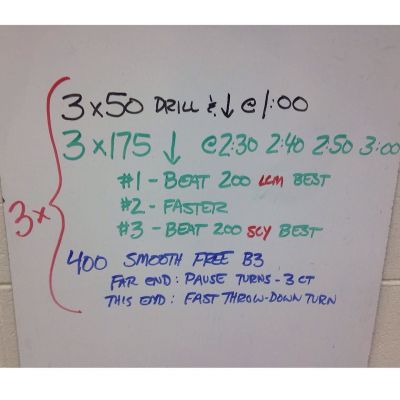 3x
3x50 DRILL & ↓ @ 1:00
3x175 ↓ @2:30 2:40 2:50 3:00
#1 - BEAT 200 LCM BEST
#2 - FASTER
#3 - BEAT 200 SCY BEST
400 SMOOTH FREE B3
FAR END: PAUSE TURNS - 3 CT
THIS END: FAST THROW-DOWN TURN